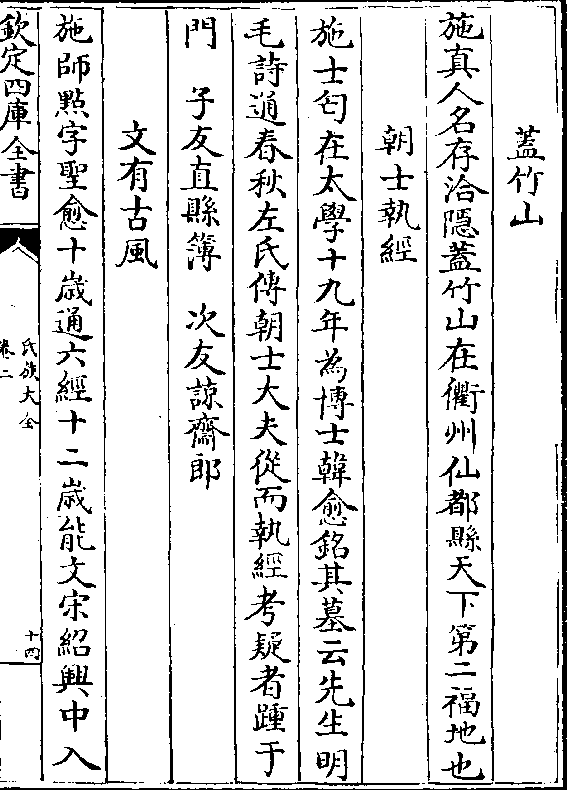 蓋竹山
施真人名存洽隱蓋竹山在衢州仙都縣天下第二福地也
朝士執經
施士匄在太學十九年為博士韓愈銘其墓云先生明
毛詩通春秋左氏傳朝士大夫從而執經考疑者踵于
門　子友直縣簿　次友諒齋郎
文有古風
施師點字聖愈十歲通六經十二歲能文宋紹興中入
欽定四庫全書
氏族大全
卷二
十四